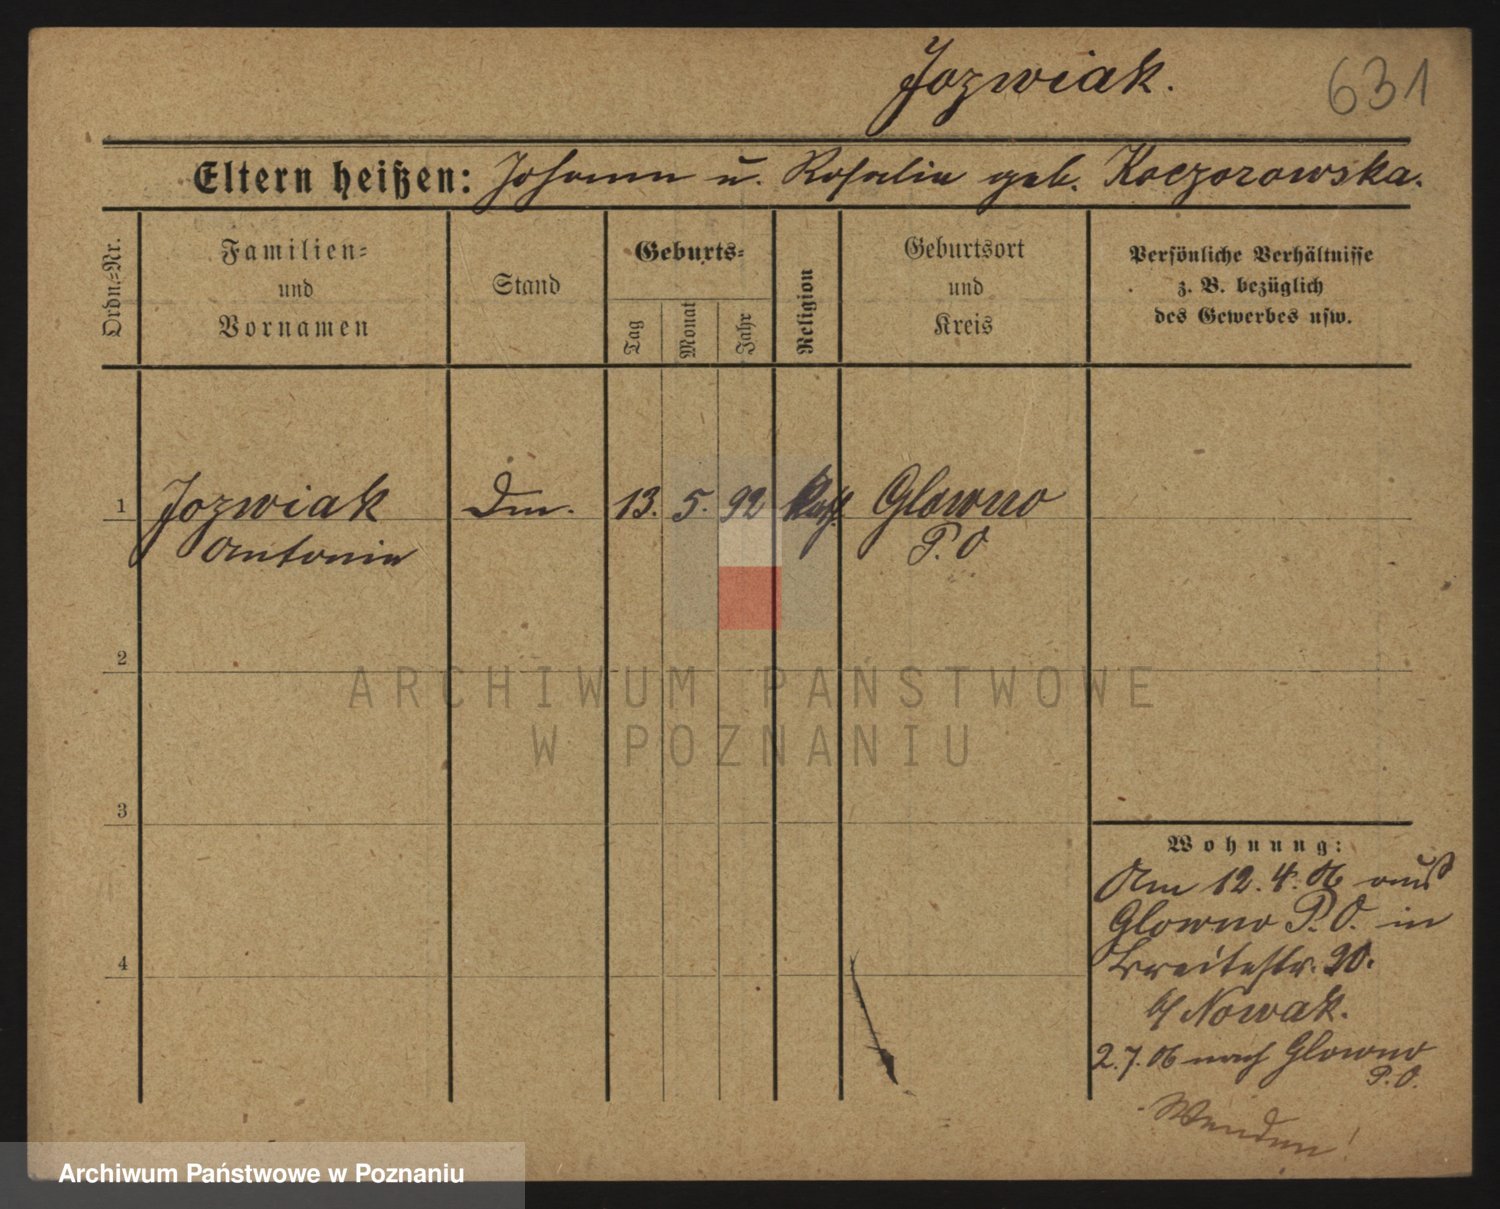 Jozwiak.
631
Eltern heißen: Johann u. Rosalia geb. Koczorowska.
Ordn.-Nr.
Familien-
und
Vornamen
Stand
Geburts-
Tag
Monat
Jahr
Religion
Geburtsort
und
Kreis
Persönliche Verhältnisse
z. B. bezüglich
des Gewerbes usw.
1 Jozwiak 13. 5. 92 Kath. Glowno
Antonia P. O
2
ARCHIWUM PAŃSTWOWE
W POZNANIU
3
Wohnung:
Am 12.4.06 aus
Glowno P. O. in
4
Breitestr. 20.
b/ Nowak.
2.7.06 nach Glowno
P. O.
Wenden!
Archiwum Państwowe w Poznaniu